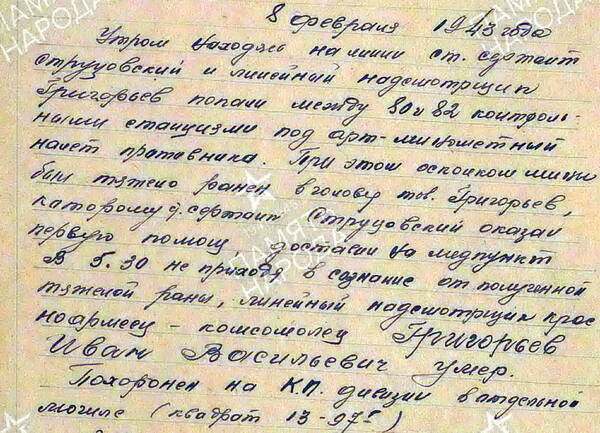 8 февраля 1943 года
Утром находясь на линии ст. сержант
Струцовский и линейный надсмотрщик
Григорьев попали между 80 и 82 контроль-
ными станциями под арт-минометный
налет противника. При этом осколком мины
был тяжело ранен в голову тов. Григорьев,
каторому с. сержант Струцовский оказал
первую помощ доставил на медпункт
В 5.30 не приходя в сознание от полученной
тяжелой раны, линейный надсмотрщик крас
ноармеец - комсомолец Григорьев
Иван Васильевич умер.
Похоронен на К.П. дивизии в отдельной
могиле (квадрат 13-97)
ПАМЯТЬ
НАРОДА